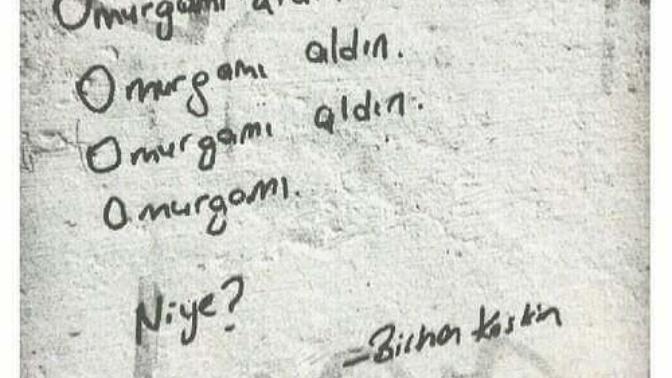 Omurgamı aldın.
Omurgamı aldın.
Omurgamı aldın.
Omurgamı.
Niye?
-Birhan Keskin